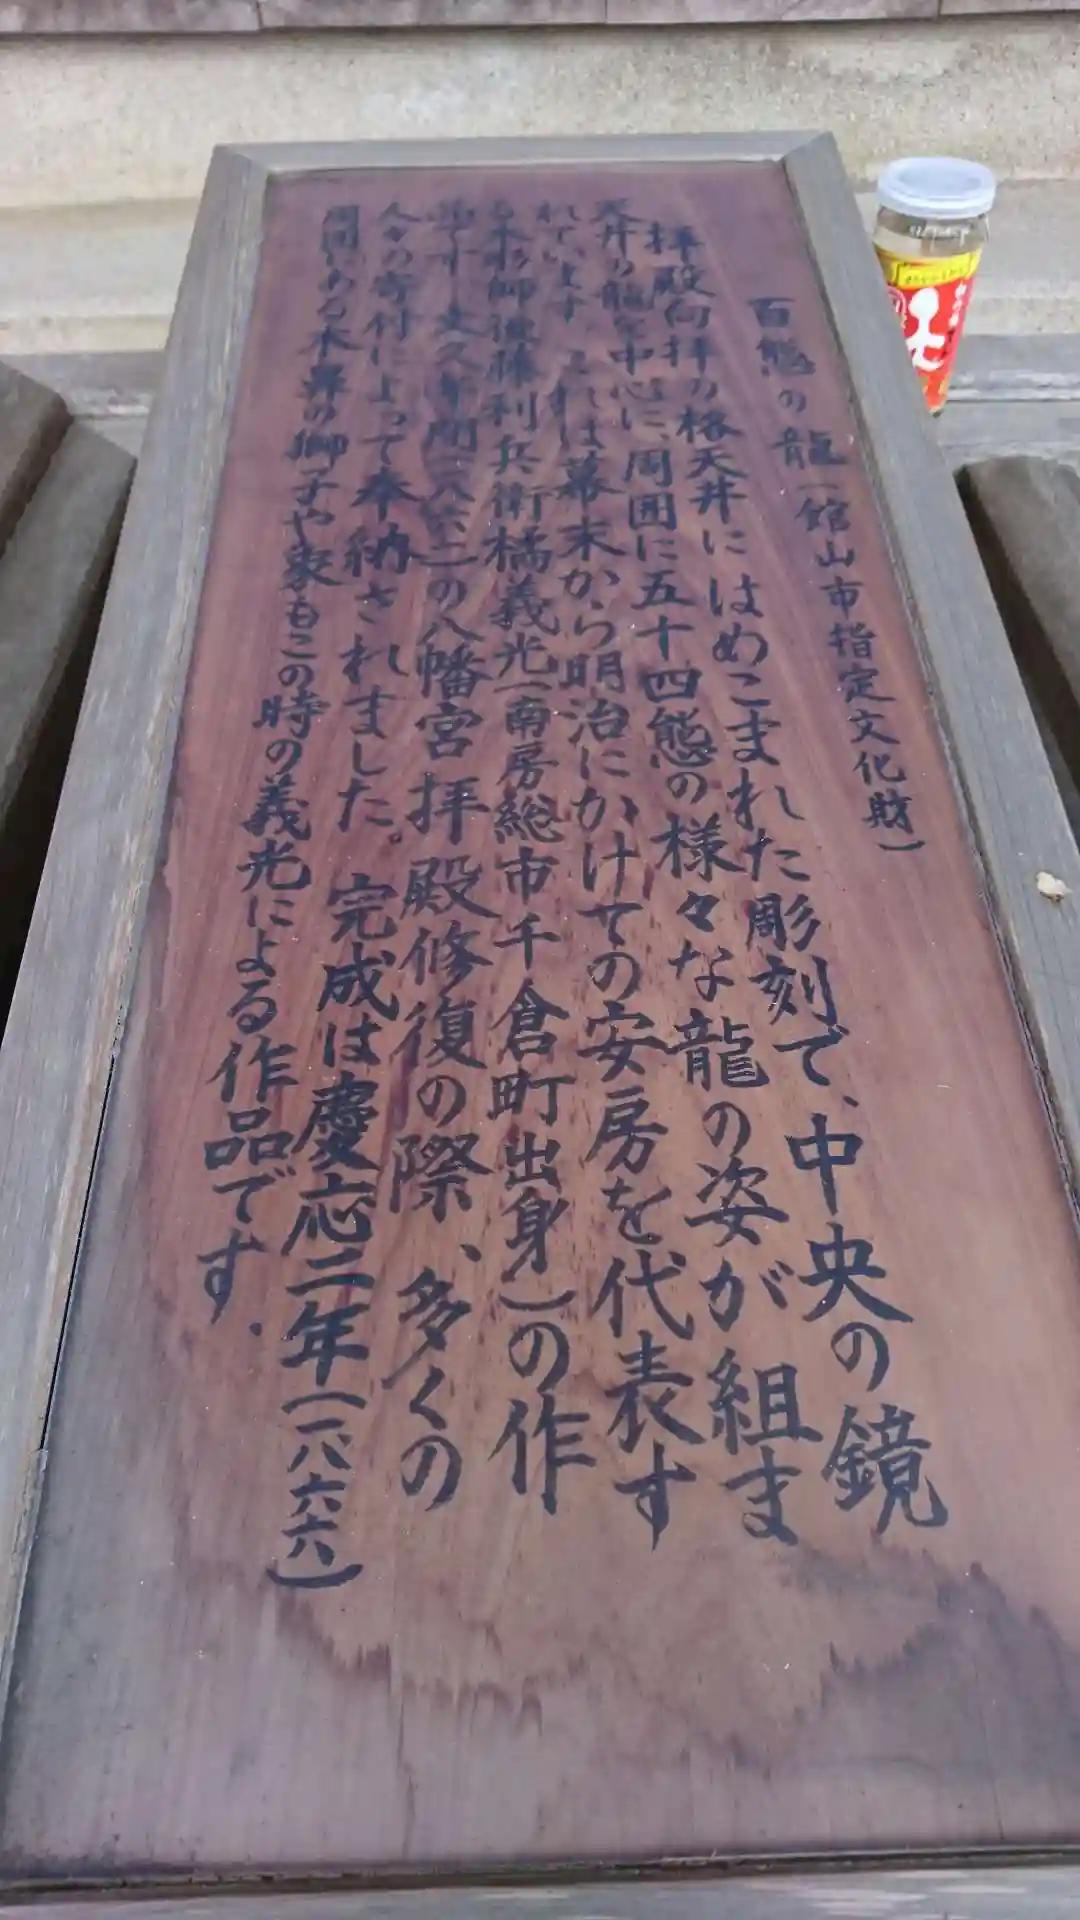 百態の龍(館山市指定文化財)
拝殿向拝の格天井にはめこまれた彫刻で、中央の鏡
天井の龍を中心に、周囲に五十四態の様々な龍の姿が組ま
れています。これは幕末から明治にかけての安房を代表す
る木彫師後藤利兵衛橘義光(南房総市千倉町出身)の作
品です。文久年間の八幡宮拝殿修復の際、多くの
人々の寄付によって奉納されました。完成は慶応二年(一八六六)
周囲にある木鼻の獅子や象もこの時の義光による作品です.